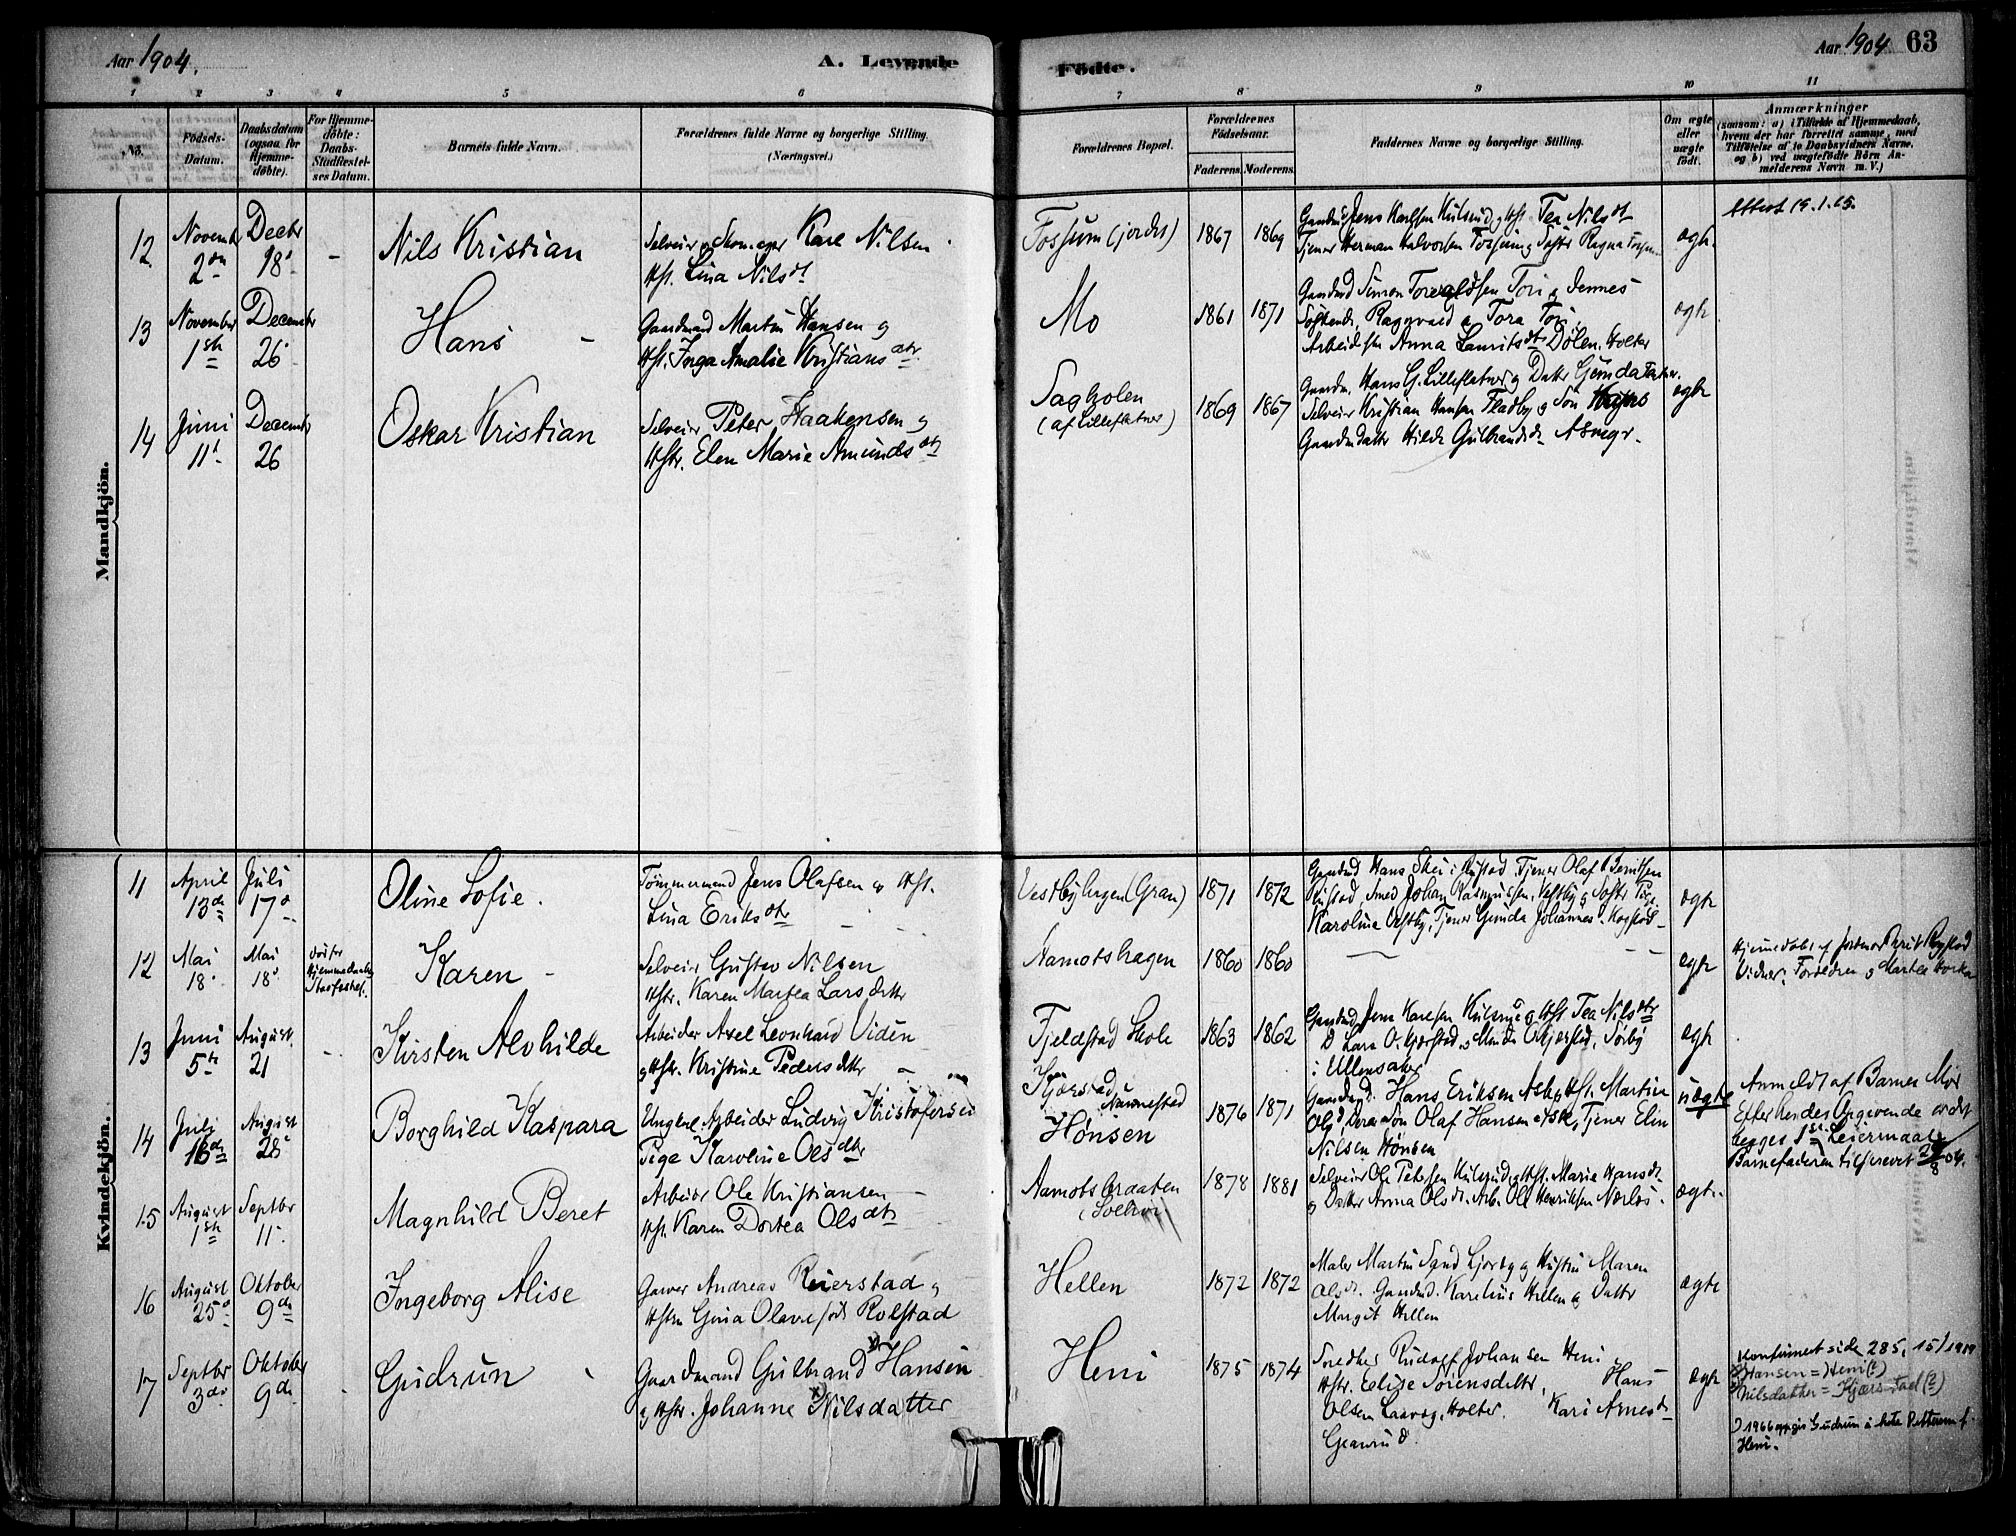 Aar 1904.
A. Levende
Födte.
Aar 1904 63
1 2 3 4 5 6 7 8 9 10 11
No.
Födsels-Datum.
Daabsdatum (ogsaa for Hjemme-döbte).
For Hjemme-döbte: Daabs-Stadfæstel-ses Datum.
Barnets fulde Navn.
Forældrenes fulde Navne og borgerlige Stilling.
(Næringsvei.)
Forældrenes Bopæl.
Forældrenes Födselsaar.
Faderens. Moderens.
Faddernes Navne og borgerlige Stilling.
Om ægte eller uægte födt.
Anmærkninger
(saasom: a) i Tilfælde af Hjemmedaab, hvem der har forrettet samme, med Tilföielse af to Daabsvidners Navne, og b) ved uægtefödte Börn Anmelderens Navn m. V.)
Mandkjön.
12 Novemb 2den Decbr 18 - Nils Kristian
Selveier og Skomager Karl Nilsen
Hst. Lina Nilsdt
Fossum (jordet) 1867 1869
Gaardmd Jens Karlsen Kulsrud og Hst. Tea Nilsdt
Tjener Herman Halvorsen Fossum og Søster Ragna Fossum
ægte.
Attest 19.1.25.
13 November 1ste December 26 Hans -
Gaardmand Martin Hansen og
Hst. Inga Amalie Kristiansdtr.
Mo 1861 1871
Gaardmd Simon Torvaldsen Tori og dennes
Søskende, Ragnvald og Tora Tori.
Arbeidsk Anna Lauritsdt Dølen. Holter
ægte
14 Juni 11te Decembr 26 Oskar Kristian
Selveier Peter Haakensen og
Hstr. Elen Marie Amundsdtr
Sagholen
(af Lilleflatner)
1869 1867
Gaardm. Hans G. Lilleflatner og Datter Gunda
Selveier Kristian Hansen Fladby og Søn Hans
Gaardmdatter Hilda Gulbrandsdt. Asmyr.
ægte
Kvindekjön.
11 April 13de Juli 17de Oline Sofie.
Tømmermand Jens Olafsen og Hst.
Lina Eriksdtr
Vestbyhagen (Gran) 1871 1872
Gaardmd Hans Skei i Rustad. Tjener Olaf Berntsen
Rustad, Smed Johan Rasmussen, Vestby og Søster Pige
Karoline Vestby, Tjener Gunda Johannes. Rogstad
ægte
12 Mai 18. Mai 18. død før Hjemmedaabs Stadfæstel. Karen -
Selveier Gustav Nilsen
Hstr. Karen Martea Larsdatter
Aamotshagen 1860 1860
ægte
Hjemmedøbt af Jordmor Berit Rogstad
Vidner: Forældren og Martea
13 Juni 5te August. 21 Kirsten Alvhilde
Arbeider Axel Leonhard Viden
og Hstr. Kristine Pedersdatter
Fjeldstad Skole 1863 1862
Gaardmd Jens Karlsen Kulsrud og Hst Tea Nilsdtr
D Lars O. Kjærstad, og Minda O Kjærstad, Sørby
i Ullensaker
ægte
14 Juli 16de August 28 Borghild Kaspara
Ungkarl Arbeider Ludvig Kristofersen
Pige Karoline Olsdtr
Kjærstad
Nannestad
Hønsen
1876 1871
Gaardmd. Hans Eriksen Ask og Hst. Martin
Olsd, deres Søn Olaf Hansen Ask, Tjener Elin
Nilsen Hønsen
uægte
Anmeldt af Barnets Mor
Efter hendes Opgivende er det
begges 1ste Leiermaal
Barnefaderen tilskrevet 29/8 04.
15 August 1ste Septbr 11. Magnhild Beret
Arbeider Ole Kristiansen
Hst. Karen Dortea Olsdtr
Aamotsbraaten 1878 1881
Selveier Ole Petersen Kulsrud og Hst. Maria Hansdt.
og Datter Anna Olsdt. Arb. Ole Henriksen Nerlos.
ægte.
16 August 25de Oktober 9de Ingeborg Alise
Garver Andreas Reierstad og
Hstru Gina Olava født Rolstad
Hellen 1872 1872
Maler Martin Sand Ljosby og Hustru Maren
Olsdt. Gaardmd. Karelius Hellen og Datter
Margit Hellen
ægte
17 Septbr 3die Oktober 9de Gudrun
Gaardmand Gulbrand x) Hansen
og Hstr. Johanne x) Nilsdatter
Heni 1875 1874
Snedker Rudolf Johansen Heni
Hstr. Elise Sørensdatter, Hans
Olsen Laavøg, Holter. Kari Arnesdt
Gearud.
ægte
Konfirmert side 285, 15/1919
x) Hansen = Heni (?)
x) Nilsdatter = Kjærstad (?)
I 1966 oppgis Gudrun å hete Pettersen f.
Heni.